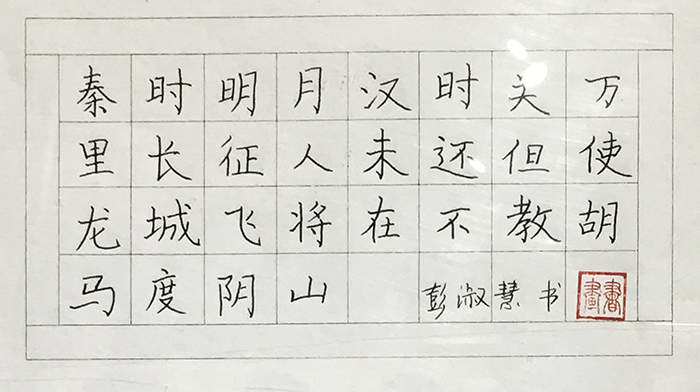 秦时明月汉时关万
里长征人未还但使
龙城飞将在不教胡
马度阴山 彭淑慧书